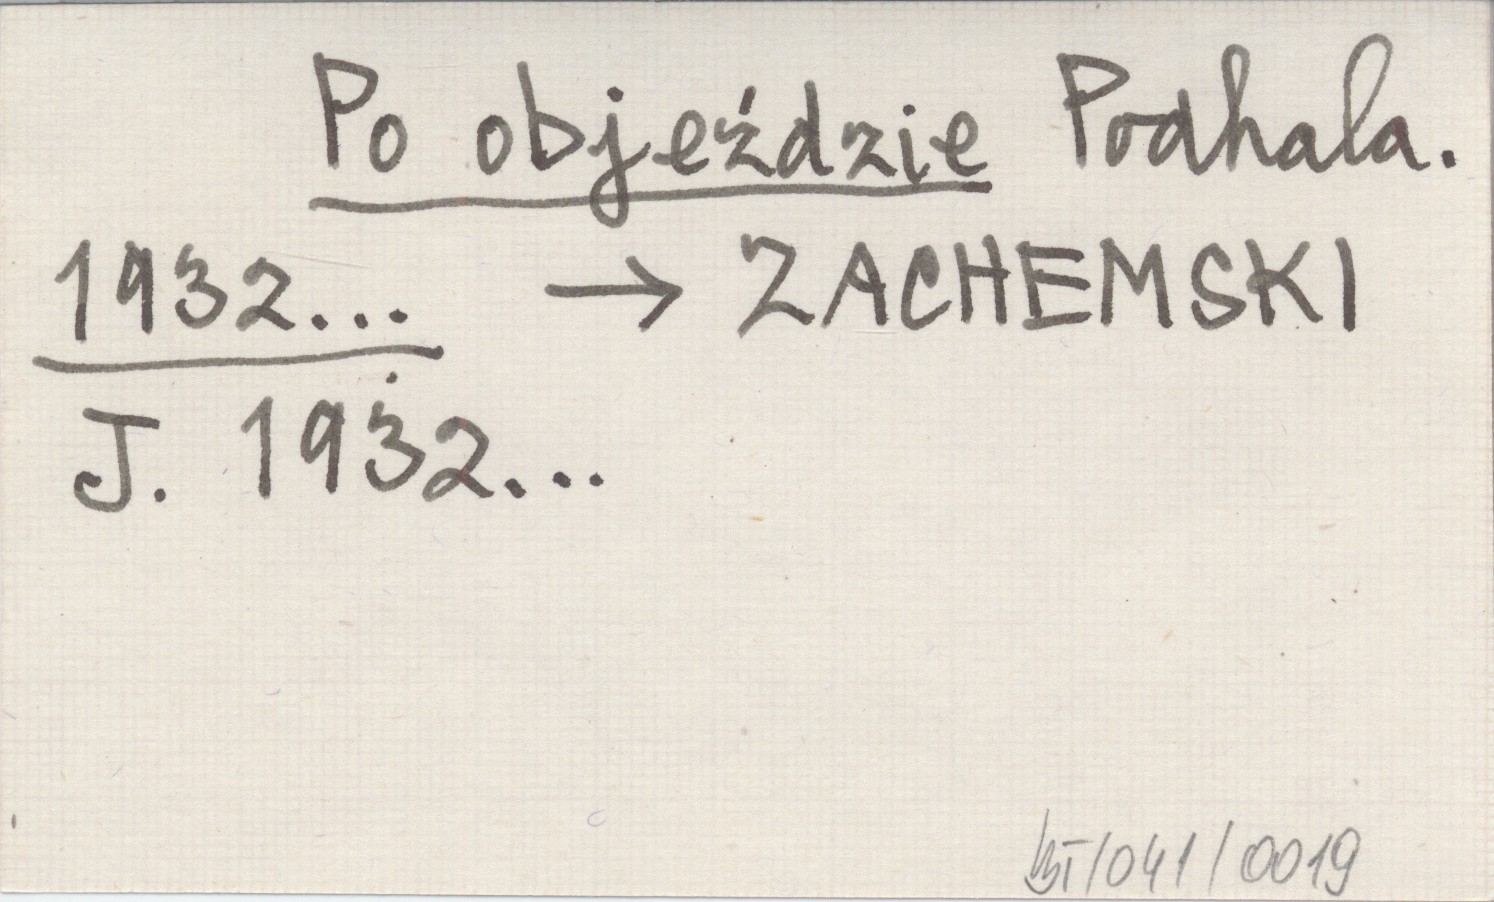 Po objeździe Podhala.
1932... → ZACHEMSKI
J. 1932...
BT/041/0019